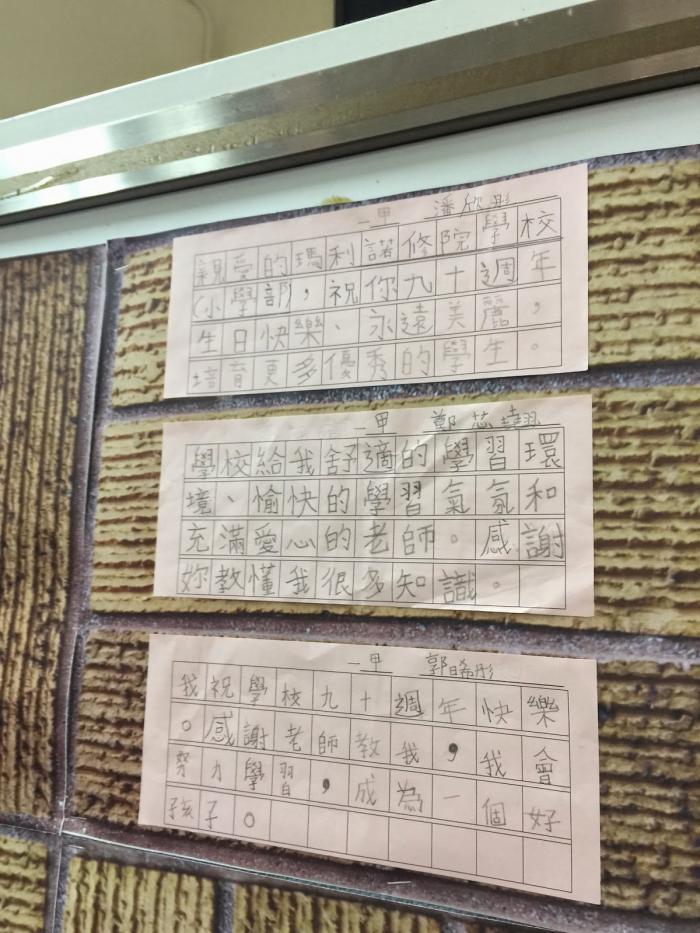 一甲 潘欣彤
親愛的瑪利諾修院學校
(小學部)，祝你九十週年
生日快樂、永遠美麗，
培育更多優秀的學生。
一甲 鄭芯翹
學校給我舒適的學習環
境、愉快的學習氣氛和
充滿愛心的老師。感謝
妳教懂我很多知識。
一甲 郭晞彤
我祝學校九十週年快樂
。感謝老師教我，我會
努力學習，成為一個好
孩子。